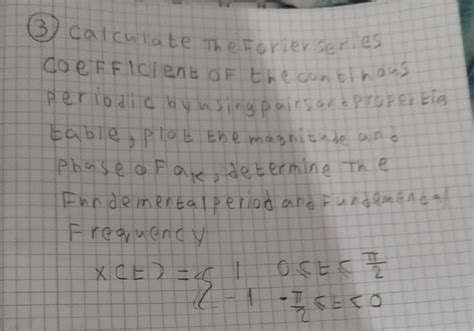 ③ calculate The Forier series
coeFFicient OF the continous
periodic by using pairs and properties
table, plot the magnitude and
phase oF ak, determine The
Fundemental period and Fundemental
Frequency
x(t) = { 1 0 ≤ t ≤ π/2
-1 -π/2 ≤ t < 0